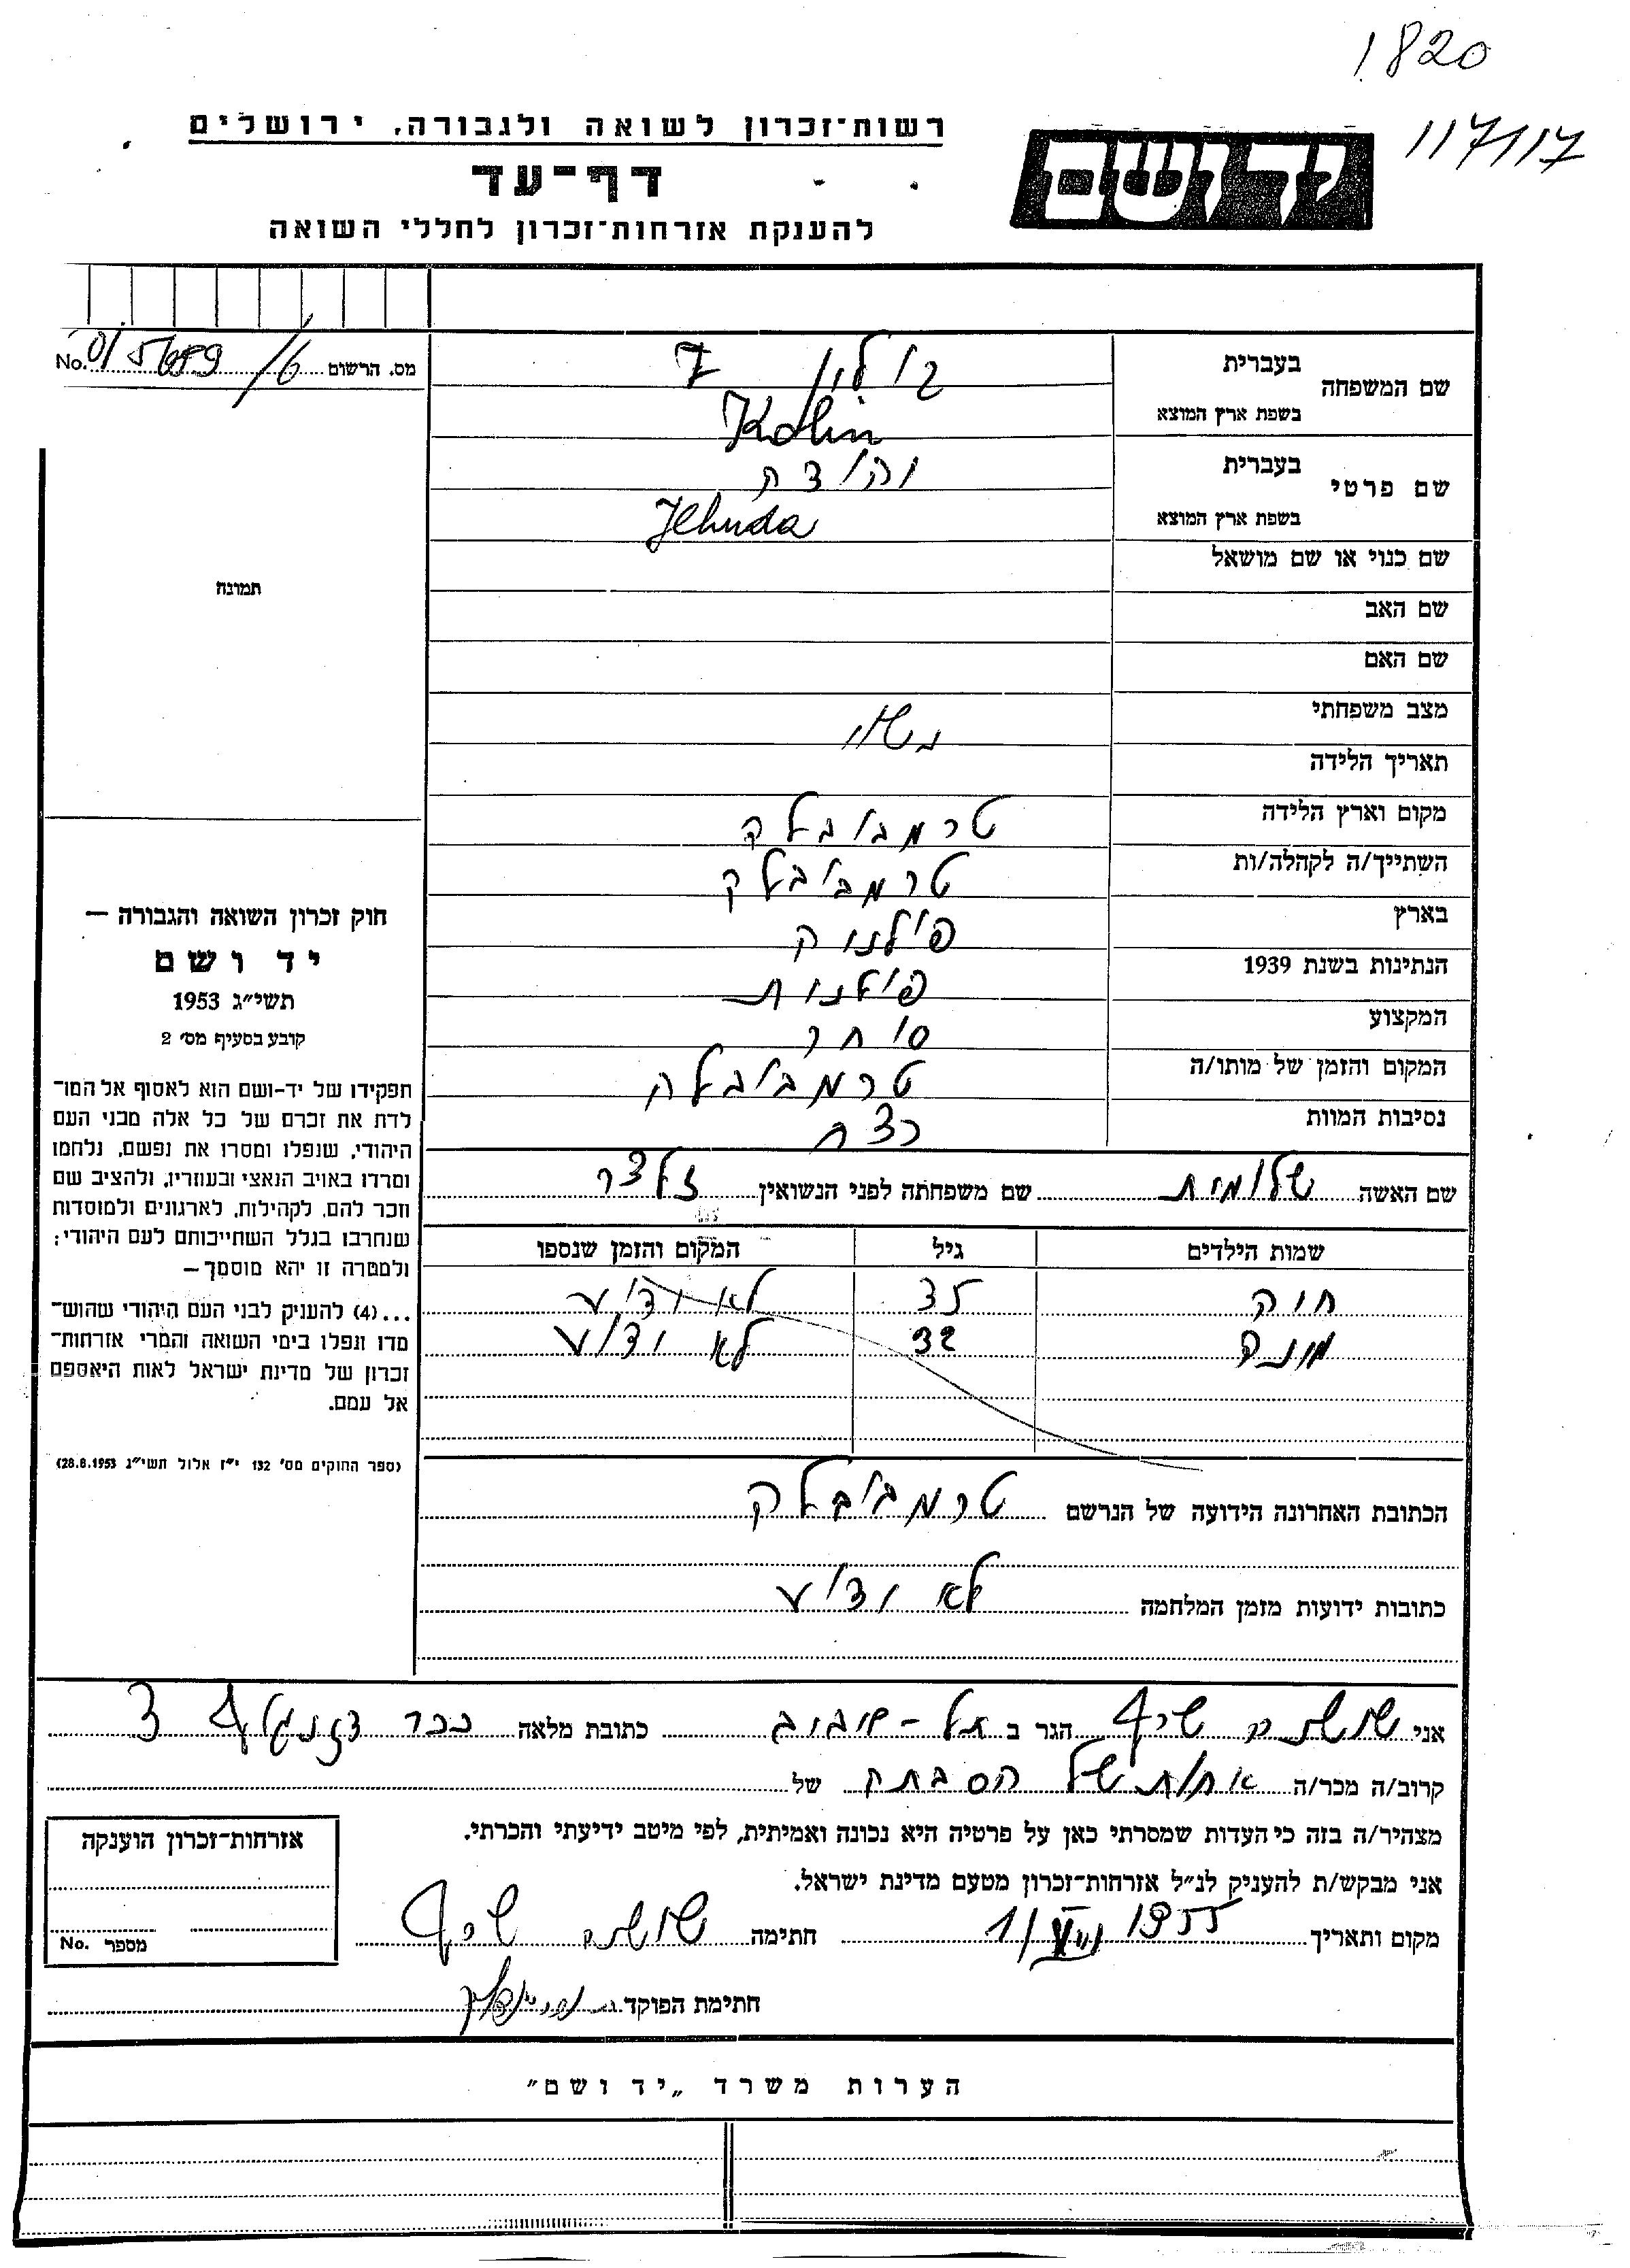 1820
117/117
רשות־זכרון לשואה ולגבורה, ירושלים
דף־עד
להענקת אזרחות־זכרון לחללי השואה
יד ושם
מס. הרשום No.
שם המשפחה
בעברית קולין
בשפת ארץ המוצא Kolin
שם פרטי
בעברית יהודה
בשפת ארץ המוצא Jehuda
שם כנוי או שם מושאל
שם האב
שם האם
מצב משפחתי נשוי
תאריך הלידה
מקום וארץ הלידה טרמבובלה
השתייך/ה לקהלה/ות טרמבובלה
בארץ פולניה
הנתינות בשנת 1939 פולנית
המקצוע סוחר
המקום והזמן של מותו/ה טרמבובלה
נסיבות המוות רצח
שם האשה שלומית שם משפחתה לפני הנשואין זלצר
שמות הילדים גיל המקום והזמן שנספו
חוה 35 לא ידוע
מונה 32 לא ידוע
הכתובת האחרונה הידועה של הנרשם טרמבובלה
כתובות ידועות מזמן המלחמה לא ידוע
תמונה
חוק זכרון השואה והגבורה —
יד ושם
תשי״ג 1953
קובע בסעיף מס׳ 2
תפקידו של יד-ושם הוא לאסוף אל המו־
לדת את זכרם של כל אלה מבני העם
היהודי, שנפלו ומסרו את נפשם, נלחמו
ומרדו באויב הנאצי ובעוזריו, ולהציב שם
וזכר להם, לקהילות, לארגונים ולמוסדות
שנחרבו בגלל השתייכותם לעם היהודי:
ולמטרה זו יהא מוסמך —
...(4) להעניק לבני העם היהודי שהוש־
מדו ונפלו בימי השואה והמרי אזרחות־
זכרון של מדינת ישראל לאות היאספם
אל עמם.
(ספר החוקים מס׳ 132 י״ז אלול תשי״ג 28.8.1953)
אני שושנה שרף הגר ב תל-אביב כתובת מלאה ככר דיזנגוף 3
קרוב/ה מכר/ה אחות של הסבתה של
מצהיר/ה בזה כי העדות שמסרתי כאן על פרטיה היא נכונה ואמיתית, לפי מיטב ידיעתי והכרתי.
אני מבקש/ת להעניק לנ״ל אזרחות־זכרון מטעם מדינת ישראל.
מקום ותאריך 1955 חתימה שושנה שרף
חתימת הפוקד
אזרחות־זכרון הוענקה
מספר No.
הערות משרד „יד ושם״